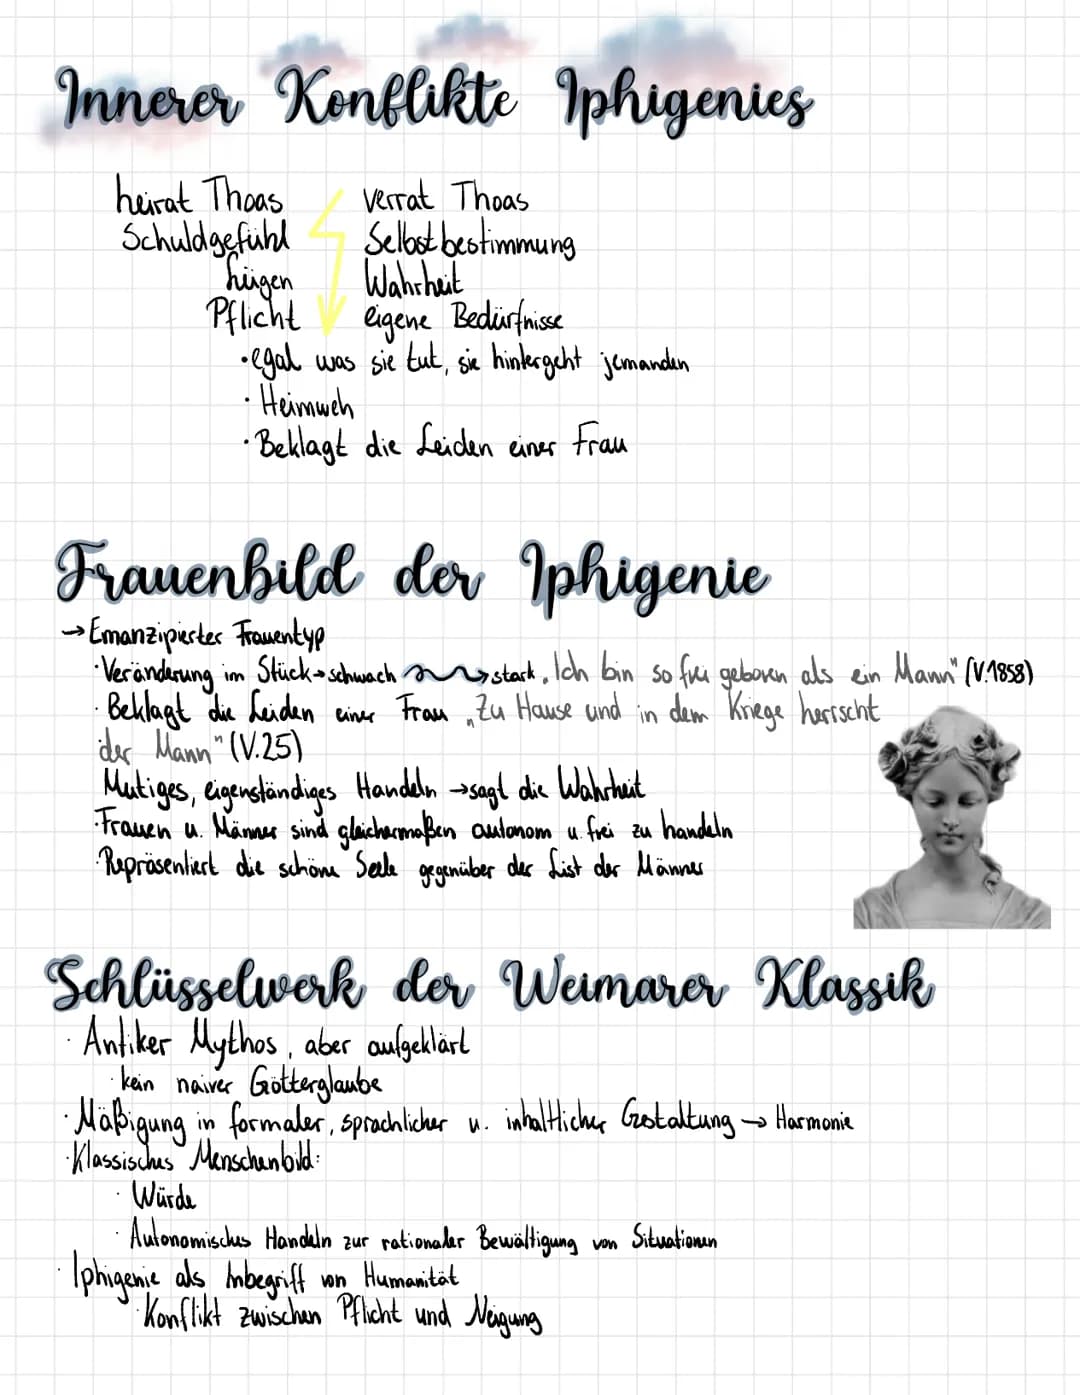 Innerer Konflikte Iphigenies
heirat Thoas verrat Thoas
Schuldgefühl Selbstbestimmung
lügen Wahrheit
Pflicht eigene Bedürfnisse
·egal was sie tut, sie hintergeht jemanden
· Heimweh
· Beklagt die Leiden einer Frau
Frauenbild der Iphigenie
→ Emanzipierter Frauentyp
· Veränderung im Stück → schwach → stark „Ich bin so frei geboren als ein Mann" (V.1858)
· Beklagt die Leiden einer Frau „Zu Hause und in dem Kriege herrscht
der Mann" (V.25)
Mutiges, eigenständiges Handeln → sagt die Wahrheit
· Frauen u. Männer sind gleichermaßen autonom u. frei zu handeln
· Repräsentiert die schöne Seele gegenüber der List der Männer
Schlüsselwerk der Weimarer Klassik
· Antiker Mythos, aber aufgeklärt
· kein naiver Götterglaube
· Mäßigung in formaler, sprachlicher u. inhaltlicher Gestaltung → Harmonie
· Klassisches Menschenbild:
· Würde
· Autonomisches Handeln zur rationaler Bewältigung von Situationen
· Iphigenie als Inbegriff von Humanität
· Konflikt zwischen Pflicht und Neigung